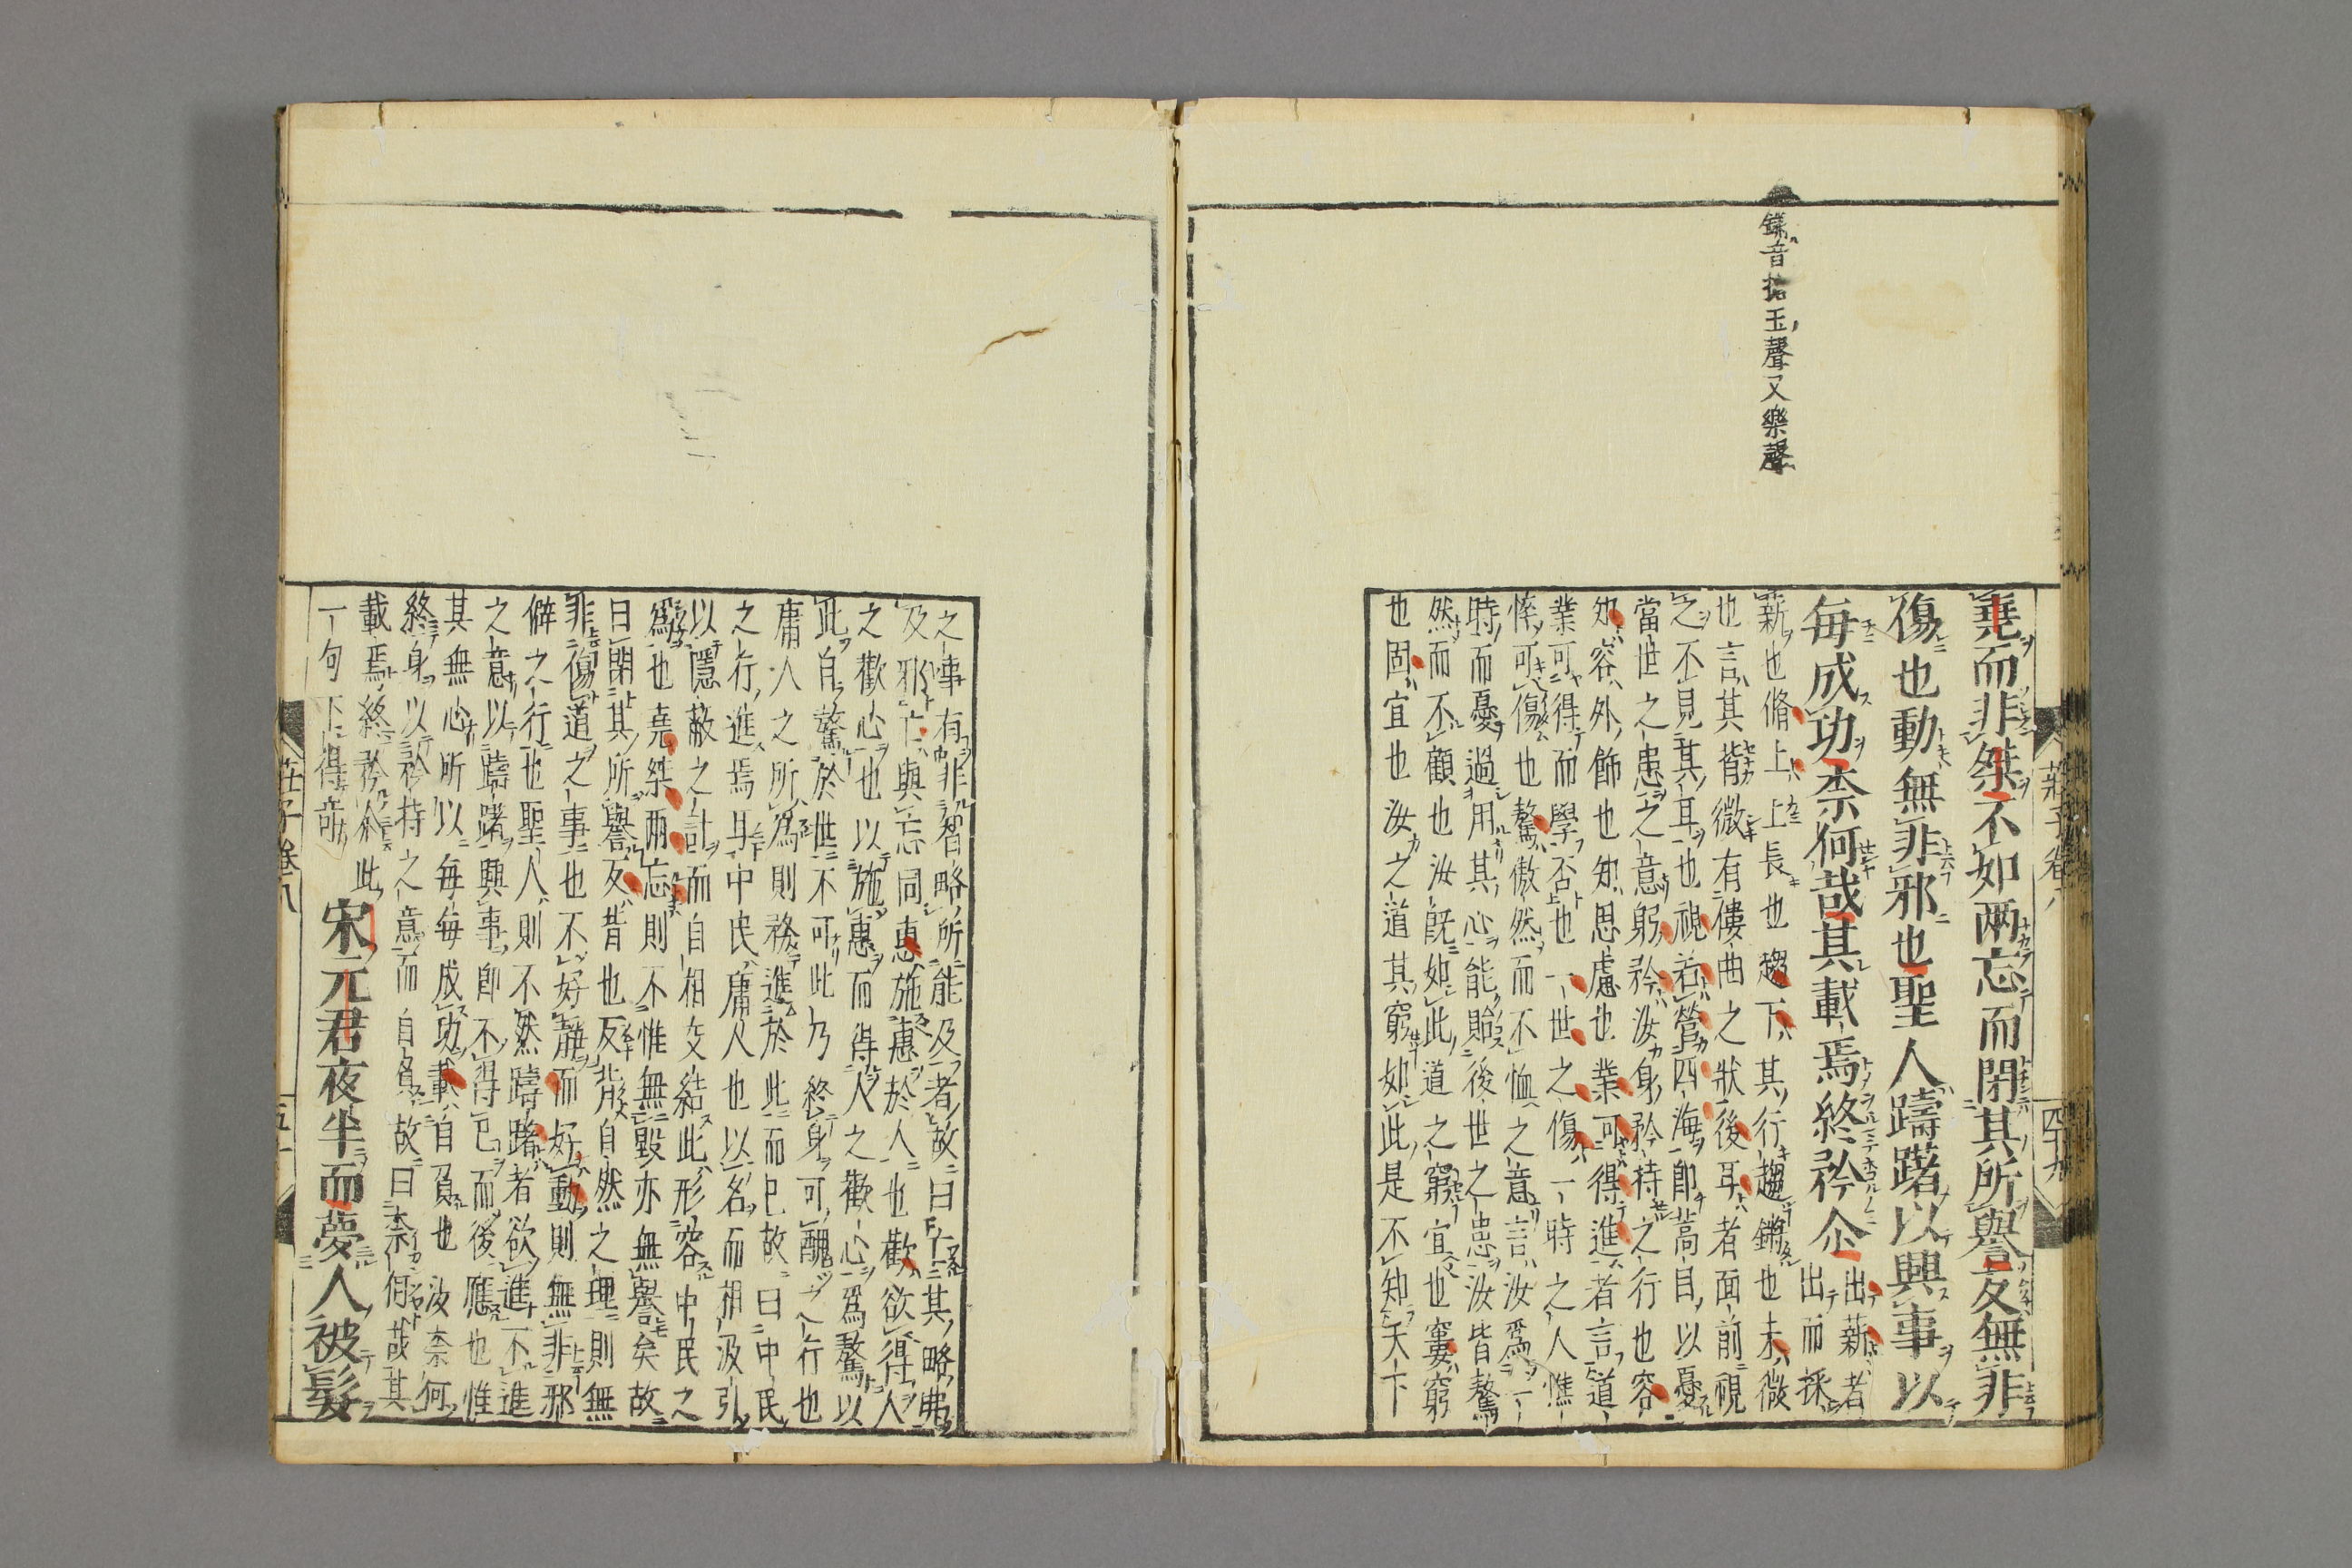 堯而非桀不如兩忘而閉其所譽反無非
傷也動無非邪也聖人躊躇以興事以
每成功柰何哉其載焉終矜尒
出薪者
出而採
薪也脩上上長也趨下其行趨也未微
也言其背微有僂曲之狀後耳者面前視
之不見其耳也視若營四海卽蒿目以憂
當世之患之意躬矜汝身矜持之行也容
知容外飾也知思慮也業可得進者言道
業可得而學否也一世之傷一時之人憔
悴可傷也驁傲然而不恤之意言汝爲一
時而憂過用其心能貽後世之患汝皆驁
然而不顧也汝旣如此道之窮宜也窶窮
也固宜也汝之道其窮如此是不知天下
音玉聲又樂聲
莊子卷八
四十九
之事有非智略所能及者故曰亡其略弗
及邪亡與忘同惠施惠於人也歡欲得人
之歡心也以施惠而得人之歡心爲驁以
此自驁於世不可此乃終身可醜之行也
庸人之所爲則務進於此而已故曰中民
之行進焉耳中民庸人也以名而相汲引
以隱蔽之計而自相交結此形容中民之
爲也堯桀兩忘則不惟無毀亦無譽矣故
曰閉其所譽反背也反背自然之理則無
非傷道之事也不好靜而好動則無非邪
僻之行也聖人則不然躊躇者欲進不進
之意以躊躇興事卽不得已而後應也惟
其無心所以每每成功載自負也汝柰何
終身以矜持之意而自負故曰柰何哉其
載焉終矜尒此
一句下得奇
宋元君夜半而夢人被髮
莊子卷八
五十